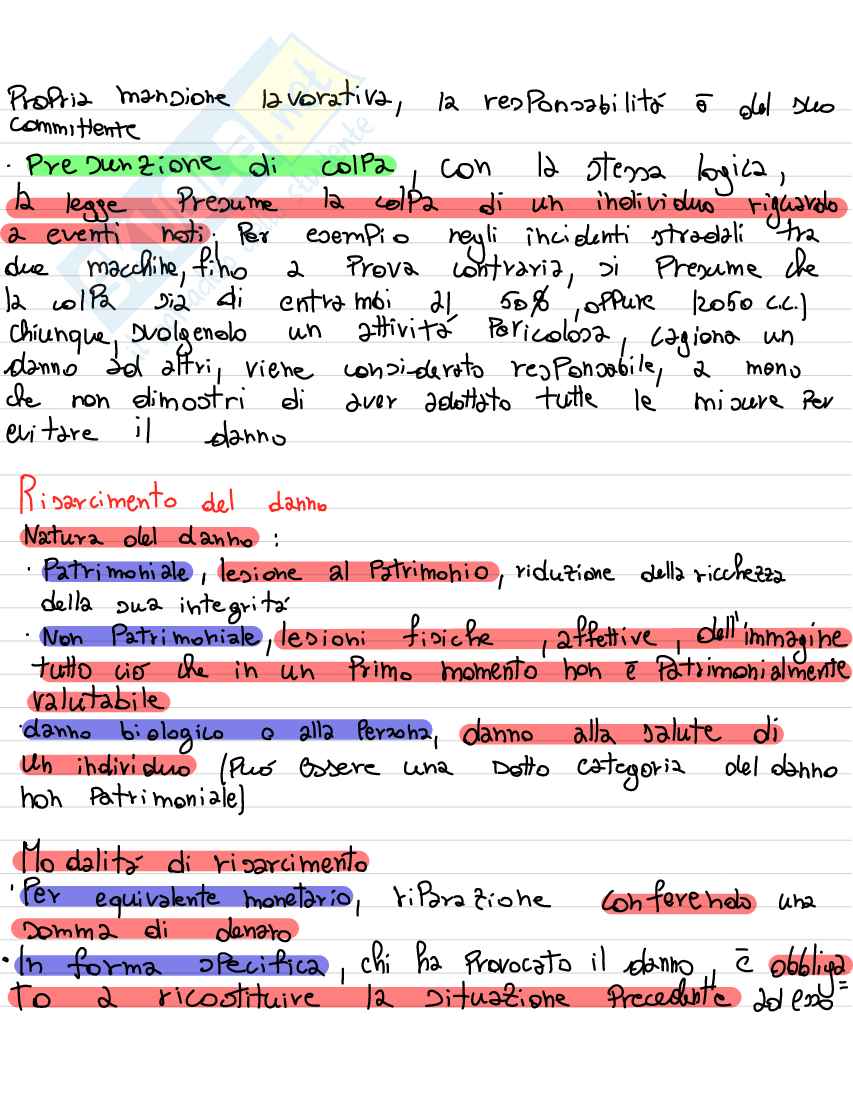 Propria mansione lavorativa, la responsabilità è del suo
committente
· Presunzione di colpa, con la stessa logica,
la legge presume la colpa di un individuo riguardo
a eventi noti. Per esempio negli incidenti stradali tra
due macchine, fino a prova contraria, si presume che
la colpa sia di entrambi al 50%, oppure (2050 c.c.)
chiunque, svolgendo un attività pericolosa, cagiona un
danno ad altri, viene considerato responsabile, a meno
che non dimostri di aver adottato tutte le misure per
evitare il danno
Risarcimento del danno
Natura del danno:
· Patrimoniale, lesione al patrimonio, riduzione della ricchezza
della sua integrità
· Non Patrimoniale, lesioni fisiche, affettive, dell'immagine
tutto ciò che in un primo momento non è patrimonialmente
valutabile
· danno biologico o alla persona, danno alla salute di
un individuo (può essere una sotto categoria del danno
non patrimoniale)
Modalità di risarcimento
· Per equivalente monetario, riparazione conferendo una
somma di denaro
· In forma specifica, chi ha provocato il danno, è obbliga=
to a ricostituire la situazione precedente ad eso=